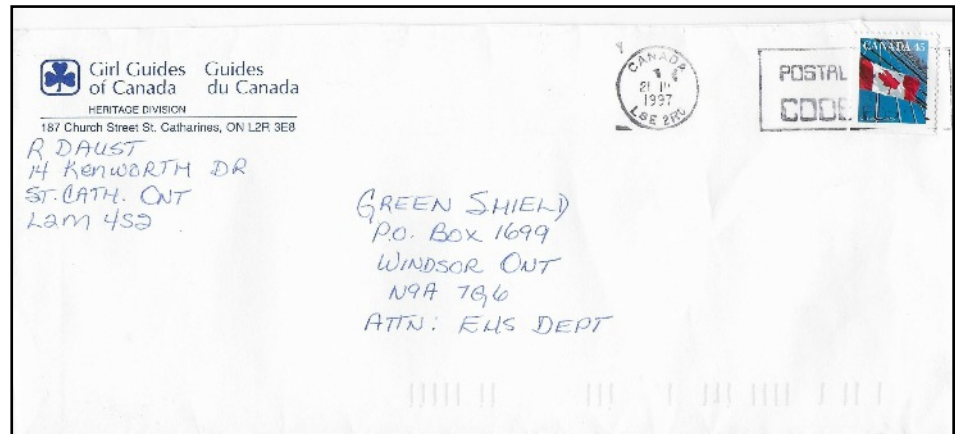 Girl Guides Guides
of Canada du Canada
HERITAGE DIVISION
187 Church Street St. Catharines, ON L2R 3E8
R DAUST
14 KENWORTH DR
ST. CATH. ONT
L2M 4S2
CANADA
1997
L8E 2R0
POSTAL
CODE
CANADA 45
GREEN SHIELD
P.O. BOX 1699
WINDSOR ONT
N9A 7G6
ATTN: EHS DEPT